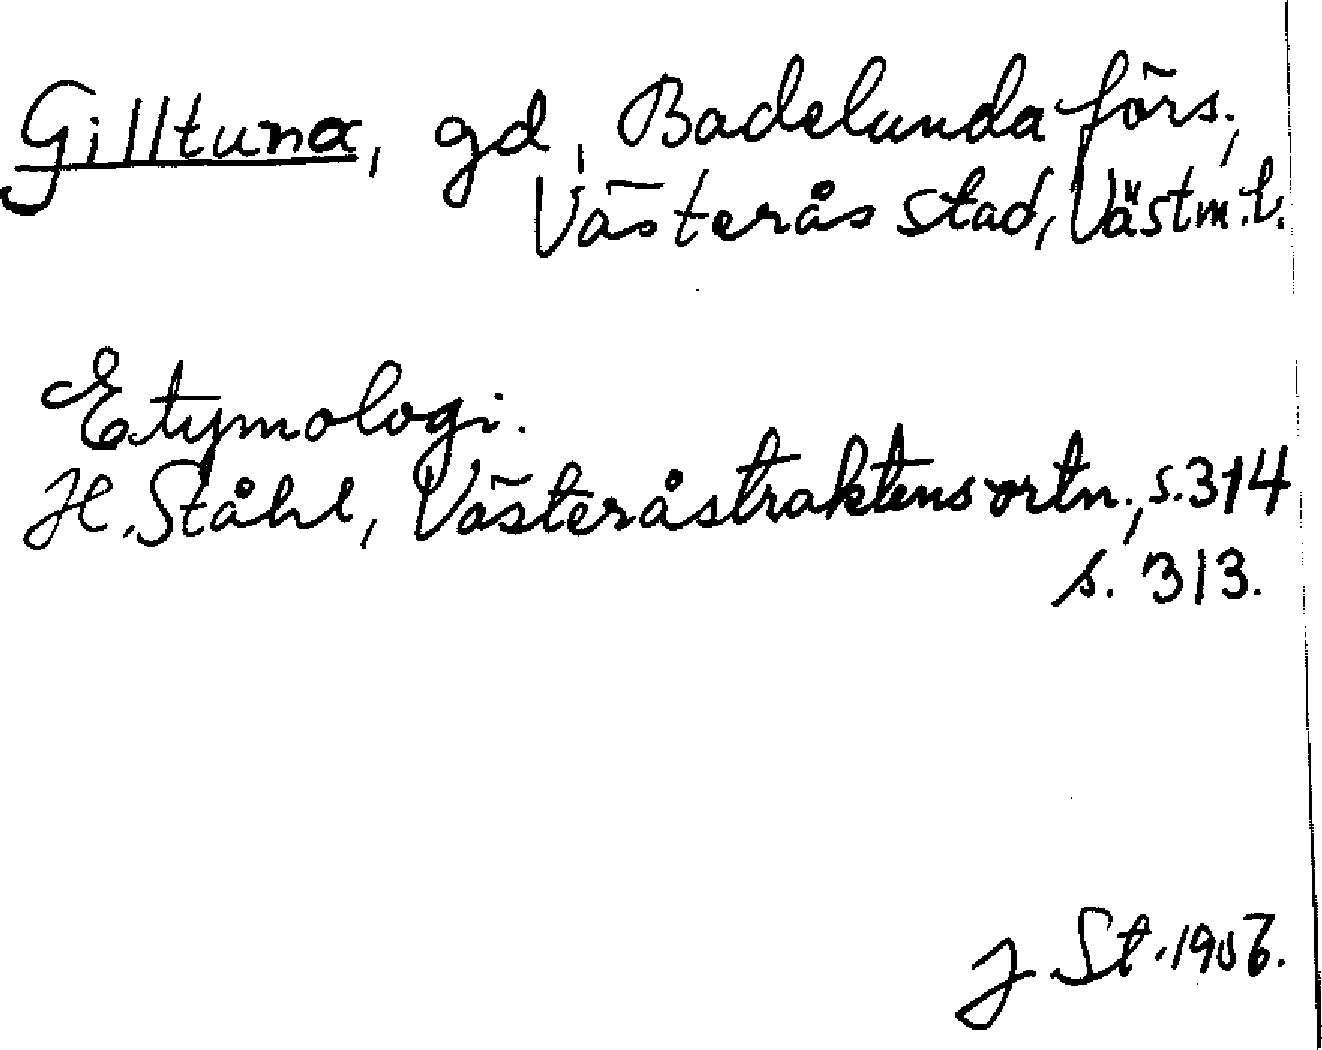 Gilltuna, gd, Badelunda förs.,
Västerås stad, Västm.l.
Etymologi.
H. Ståhl, Västeråstraktens ortn., s. 314
s. 313.
J St. 1906.